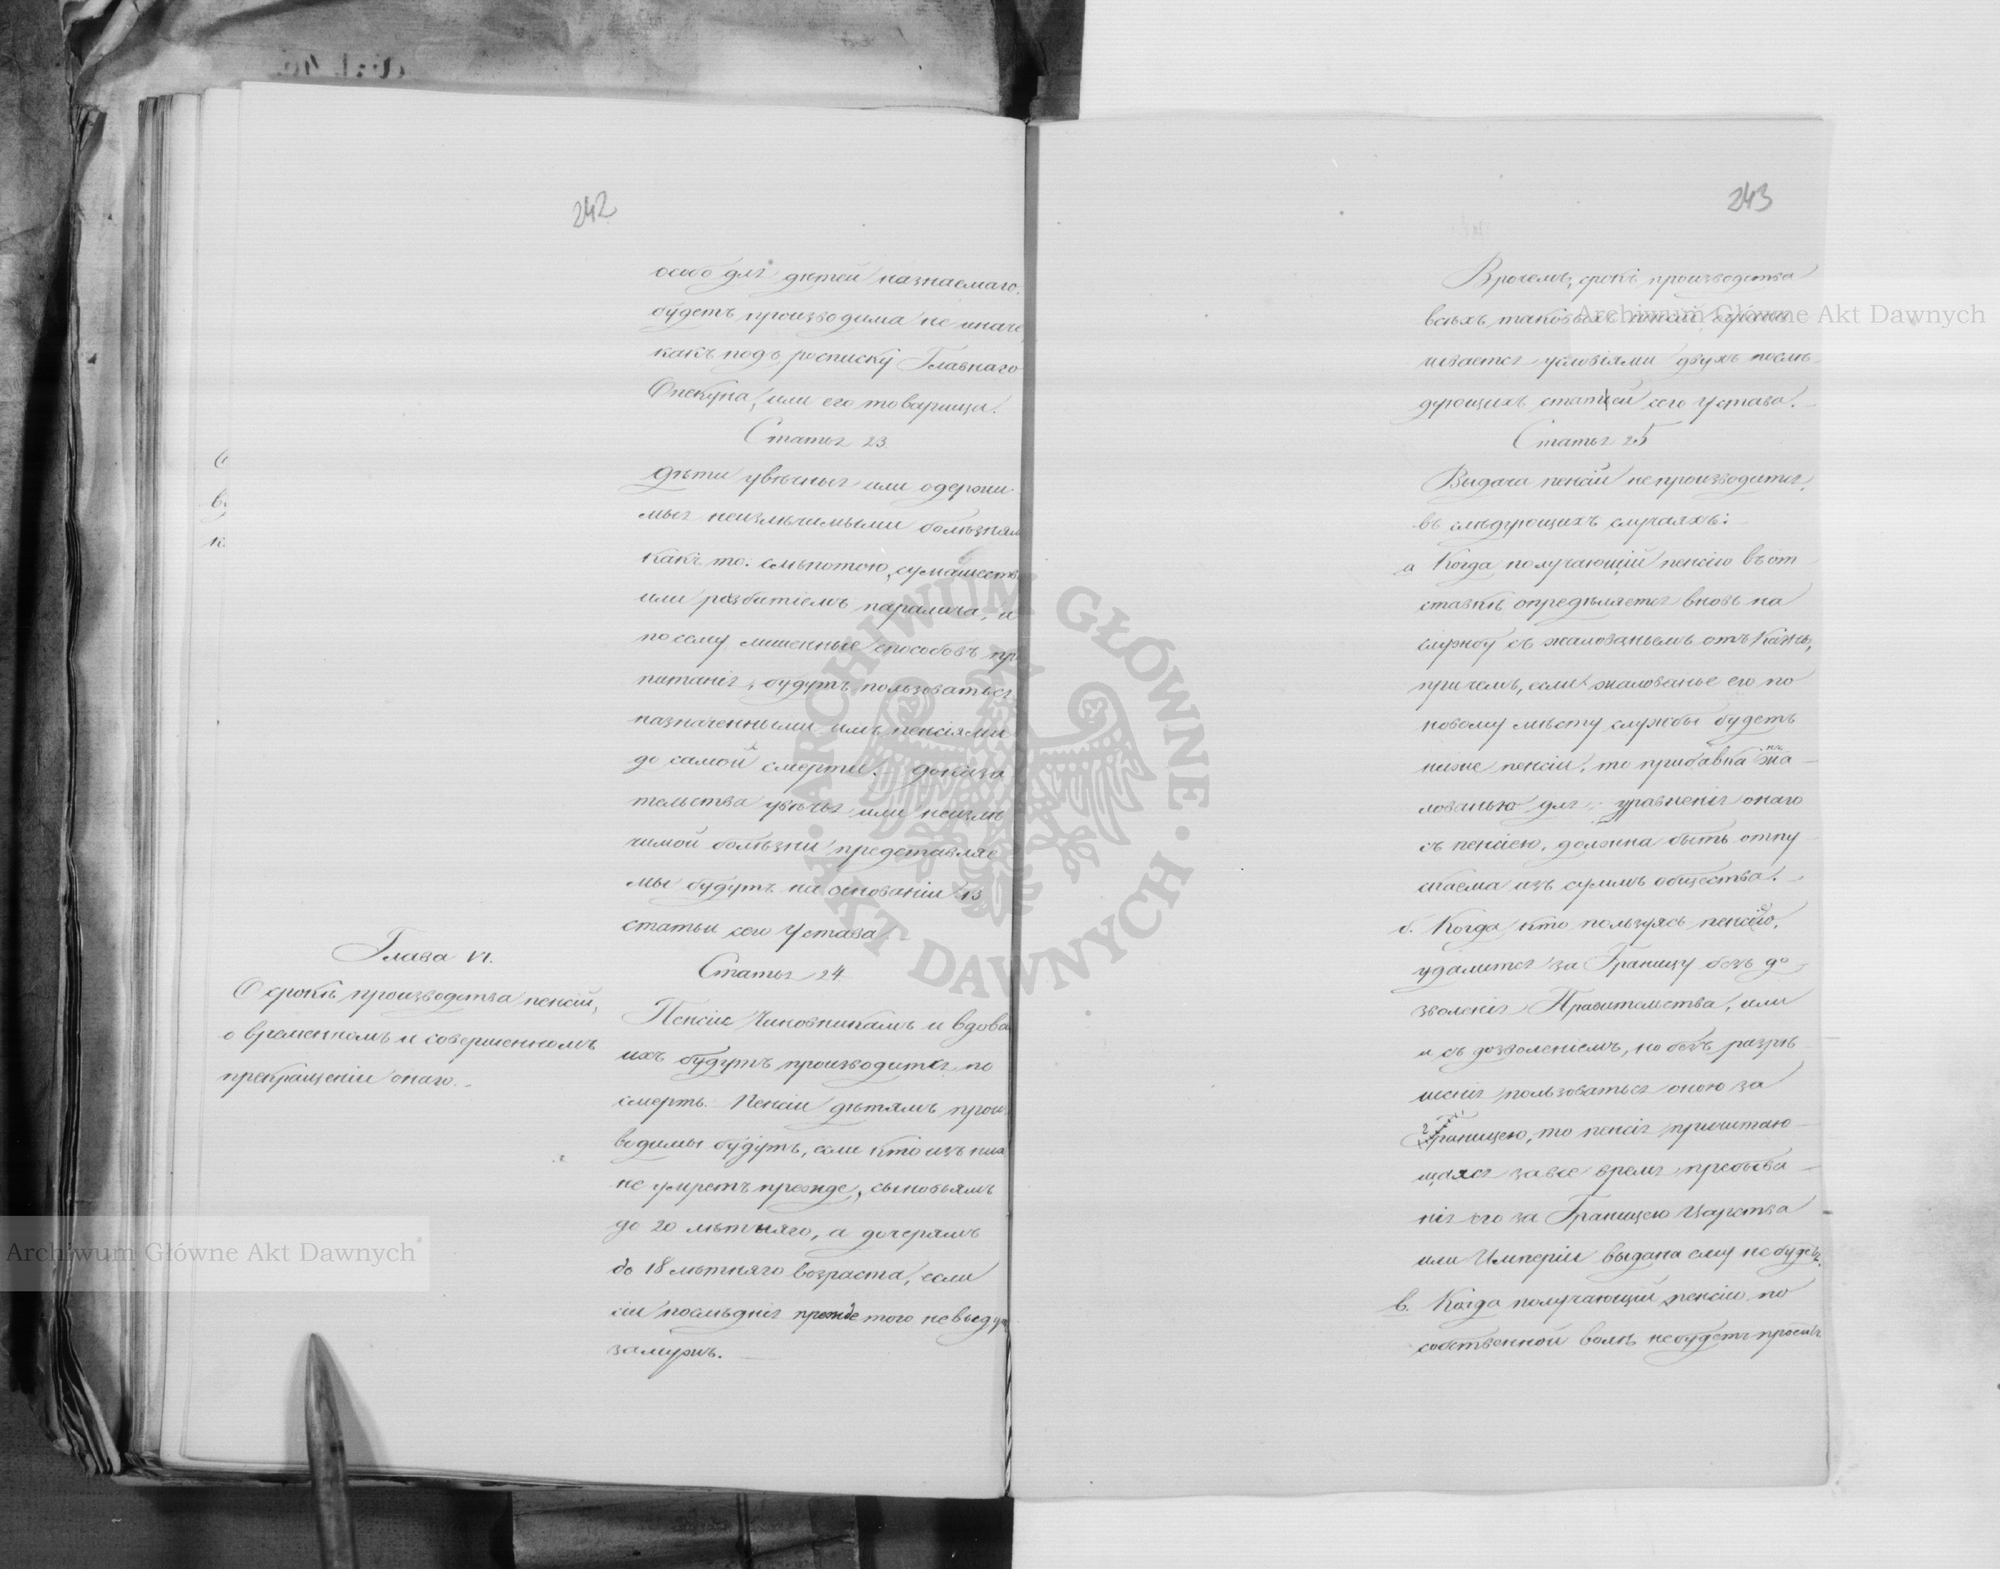 242
особо для дѣтей назнаемаго,
будетъ производима не иначе
какъ подъ росписку Главнаго
Опекуна, или его товарища.
Статья 23
Дѣти увѣчныя или одержи
мыя неизлѣчимыми болѣзням
какъ то: слѣпотою, сумашеств
или разбитіемъ паралича, и
по сему лишенные способовъ пр
питанія, будутъ пользоваться
назначенными имъ пенсіями
до самой смерти. Доказа
тельства увѣчья или неизлѣ
чимой болѣзни представляе
мы будутъ на основаніи 13
статьи сего Устава
Глава VI.
О срокѣ производства пенсій,
о временномъ и совершенномъ
прекращеніи онаго.
Статья 24.
Пенсіи Чиновникамъ и вдова
ихъ будутъ производится по
смерть. Пенсіи дѣтямъ прои
водимы будутъ, если кто изъ них
не умретъ прежде, сыновьямъ
до 20 лѣтняго, а дочерямъ
до 18 лѣтняго возраста, если
сіи послѣднія прежде того не выдут
замужъ.
243
Впрочемъ, срокъ производства
всѣхъ таковыхъ пенсій ограни
чивается условіями двухъ послѣ
дующихъ статьей сего Устава.
Статья 25
Выдача пенсіи не производится,
въ слѣдующихъ случаяхъ:
а Когда получающій пенсію въ от
ставкѣ опредѣляется вновь на
службу съ жалованьемъ отъ Казны,
при чемъ, если жалованье его по
новому мѣсту службы будетъ
ниже пенсіи, то прибавка къ жа
лованью для уравненія онаго
съ пенсіею, должна быть отпу
скаема изъ суммъ общества.
б. Когда кто пользуясь пенсіею,
удалится за Границу безъ до
зволенія Правительства, или
и съ дозволеніемъ, но безъ разрѣ
шенія пользоваться оною за
Границею, то пенсія причитаю
щаяся за все время пребыва
нія его за Границею Царства
или Имперіи выдана ему не будетъ.
в. Когда получающій пенсію по
собственной волѣ не будетъ просить
Archiwum Główne Akt Dawnych
Archiwum Główne Akt Dawnych
ARCHIWUM GŁÓWNE · AKT DAWNYCH ·